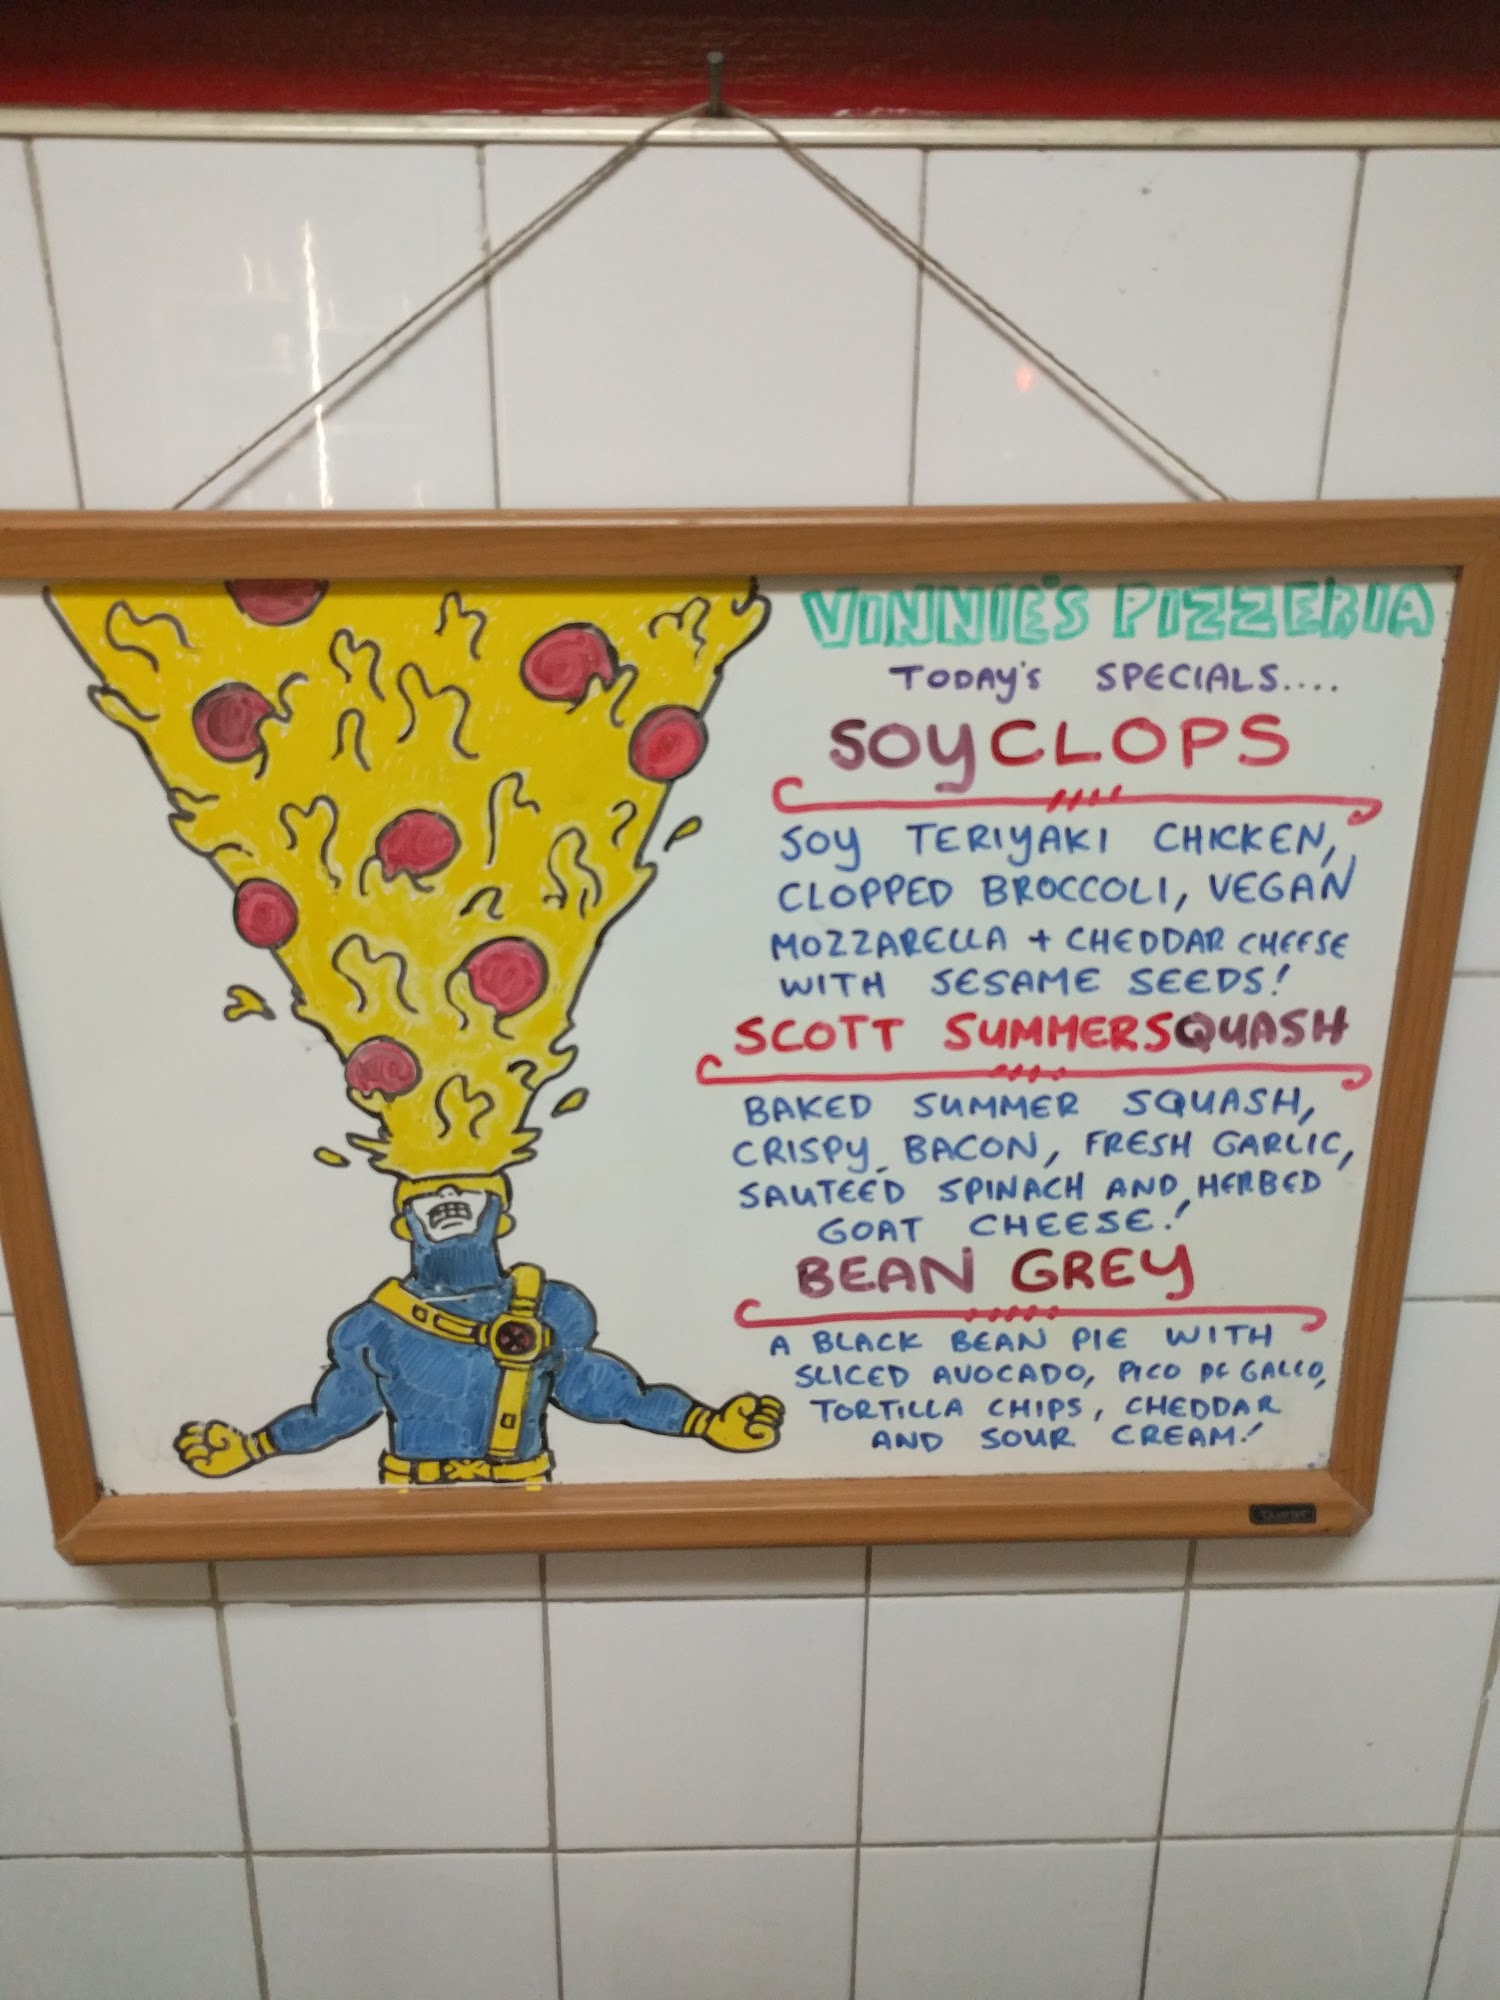 VINNIE'S PIZZERIA
TODAY'S SPECIALS....
SOYCLOPS
SOY TERIYAKI CHICKEN,
CLOPPED BROCCOLI, VEGAN
MOZZARELLA + CHEDDAR CHEESE
WITH SESAME SEEDS!
SCOTT SUMMERSQUASH
BAKED SUMMER SQUASH,
CRISPY BACON, FRESH GARLIC,
SAUTEED SPINACH AND HERBED
GOAT CHEESE!
BEAN GREY
A BLACK BEAN PIE WITH
SLICED AVOCADO, PICO DE GALLO,
TORTILLA CHIPS, CHEDDAR
AND SOUR CREAM!